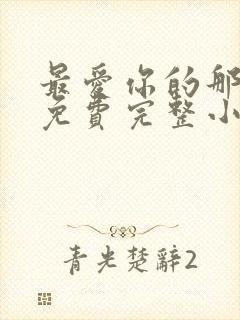 最愛你的那
免費完整小
青光楚辭2